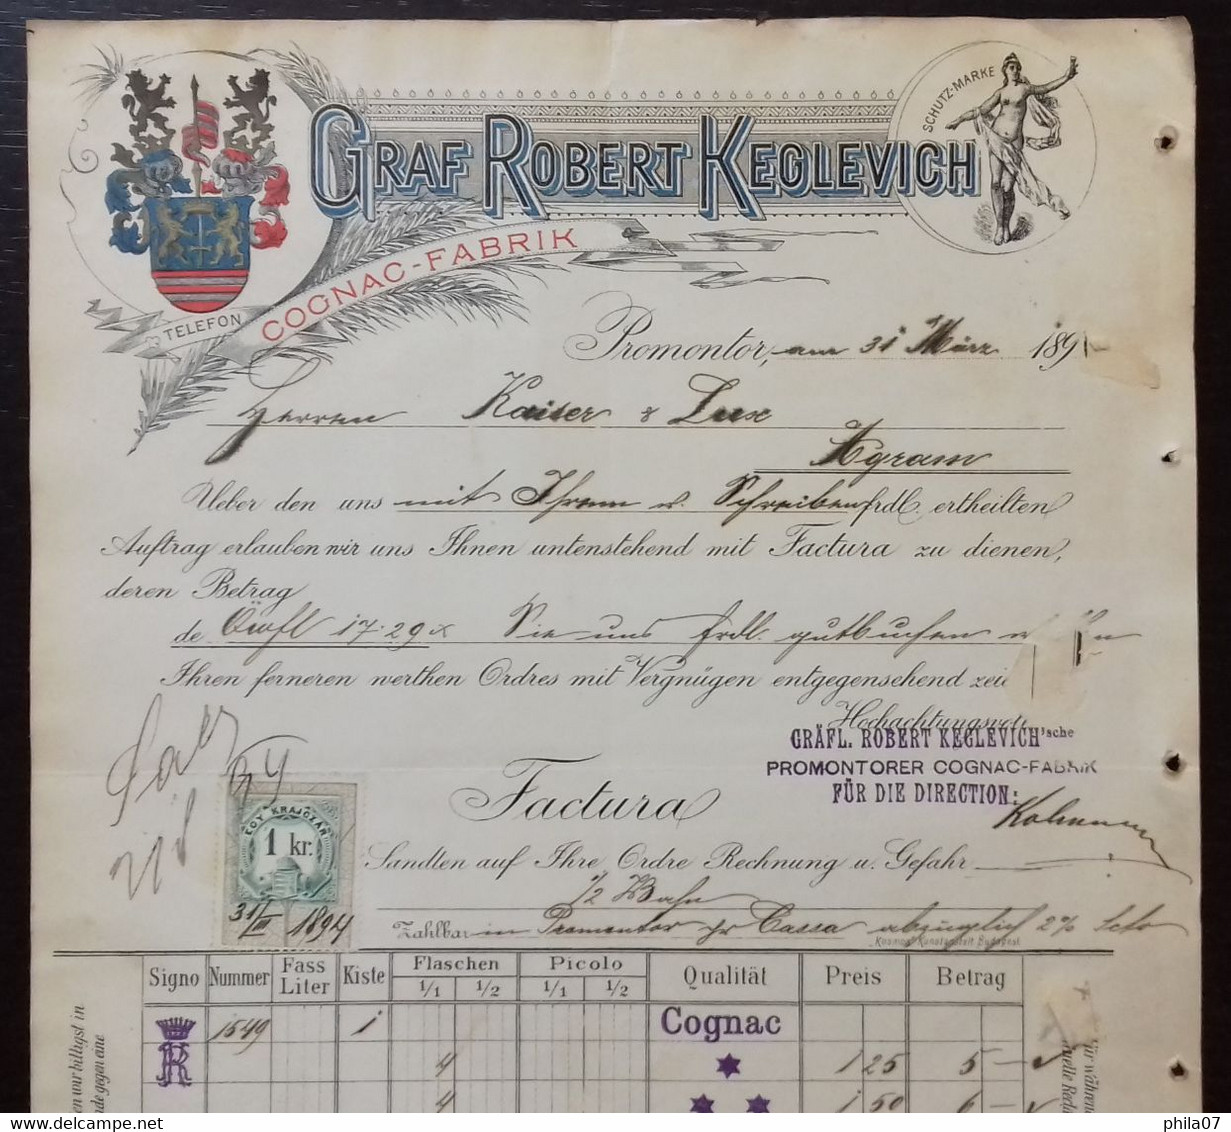 GRAF ROBERT KEGLEVICH
SCHUTZ-MARKE
COGNAC-FABRIK
TELEFON
Promontor, am 31 März 189
Herren Kaiser & Lux
Agram
Ueber den uns mit Ihrem w. Schreiben frdl. ertheilten
Auftrag erlauben wir uns Ihnen untenstehend mit Factura zu dienen,
deren Betrag
de Öwfl 17.29 x Sie uns frdl. gutbuchen
Ihren ferneren werthen Ordres mit Vergnügen entgegensehend zei
Hochachtungsvoll
GRÄFL. ROBERT KEGLEVICH'sche
PROMONTORER COGNAC-FABRIK
FÜR DIE DIRECTION:
Factura
EGY KRAJCZÁR
1 kr.
31/III 1894
Sandten auf Ihre Ordre Rechnung u. Gefahr
Bahn
Zahlbar in Promontor pr Cassa abzüglich 2% Scto
Kosmos Kunstanstalt Budapest
Signo Nummer Fass Liter Kiste Flaschen Picolo Qualität Preis Betrag
1/1 1/2 1/1 1/2
1549 1 Cognac
R 4 1 25 5 —
4 1 50 6 —
en wir billigst in
nde gegen eine
für währen
www.delcampe.net
phila07